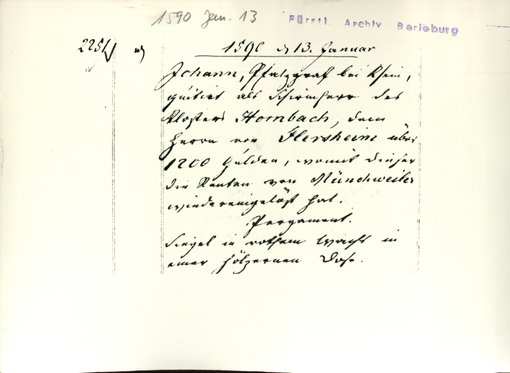 1590 Jan. 13
Fürstl. Archiv Berleburg
1590 d 13. Januar
Johann, Pfalzgraf bei Rhein,
quitirt als Schirmherr des
Klosters Hornbach, dem
Herrn von Flersheim über
1200 Gulden, womit dieser
die Renten von Münchweiler
wiedereingelöst hat.
Pergament.
Siegel in rothem Wachs in
einer hölzernen Dose.